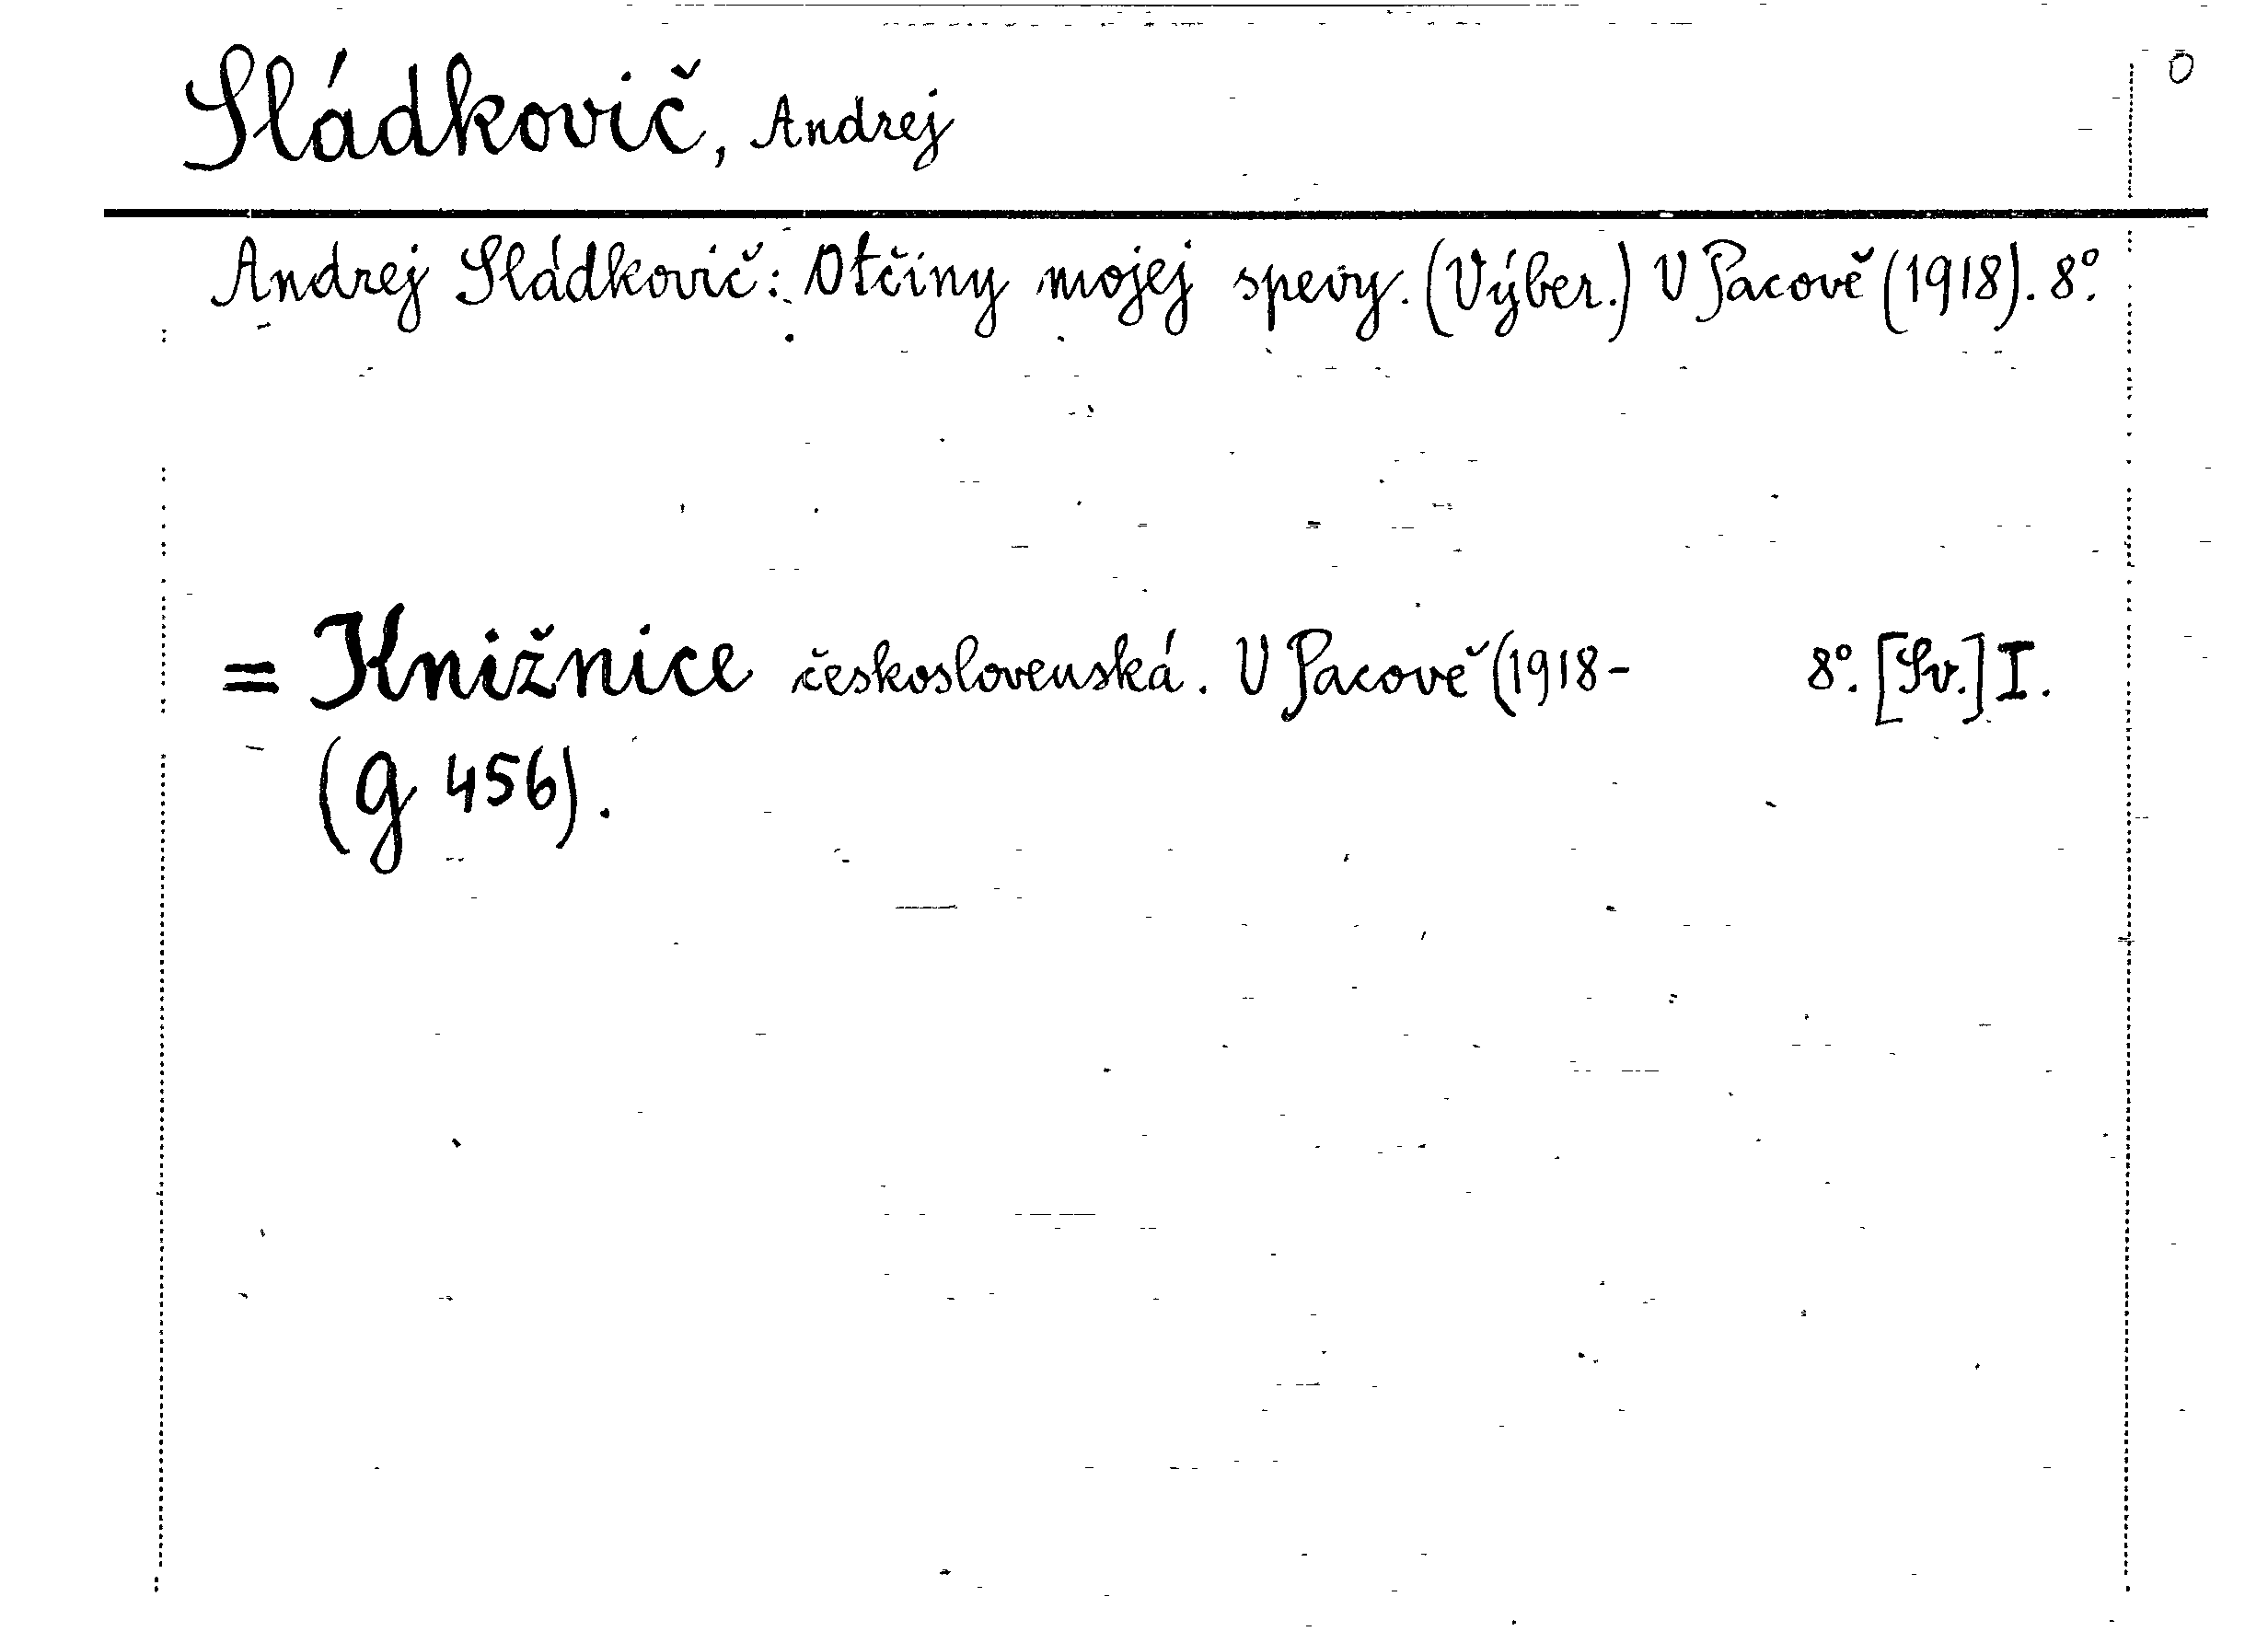 O
Sládkovič, Andrej
Andrej Sládkovič: Otčiny mojej spevy. (Výber.) V Pacově (1918). 8°.
= Knižnice československá. V Pacově (1918- 8°. [Sv.] I.
(g 456).